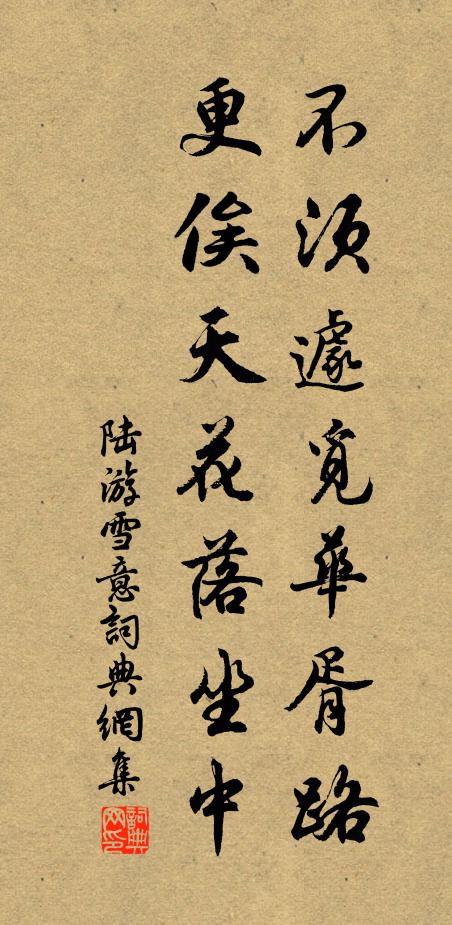 不須遽覓華胥路
更俟天花落坐中
陆游雪意詞典網集
詞典网印